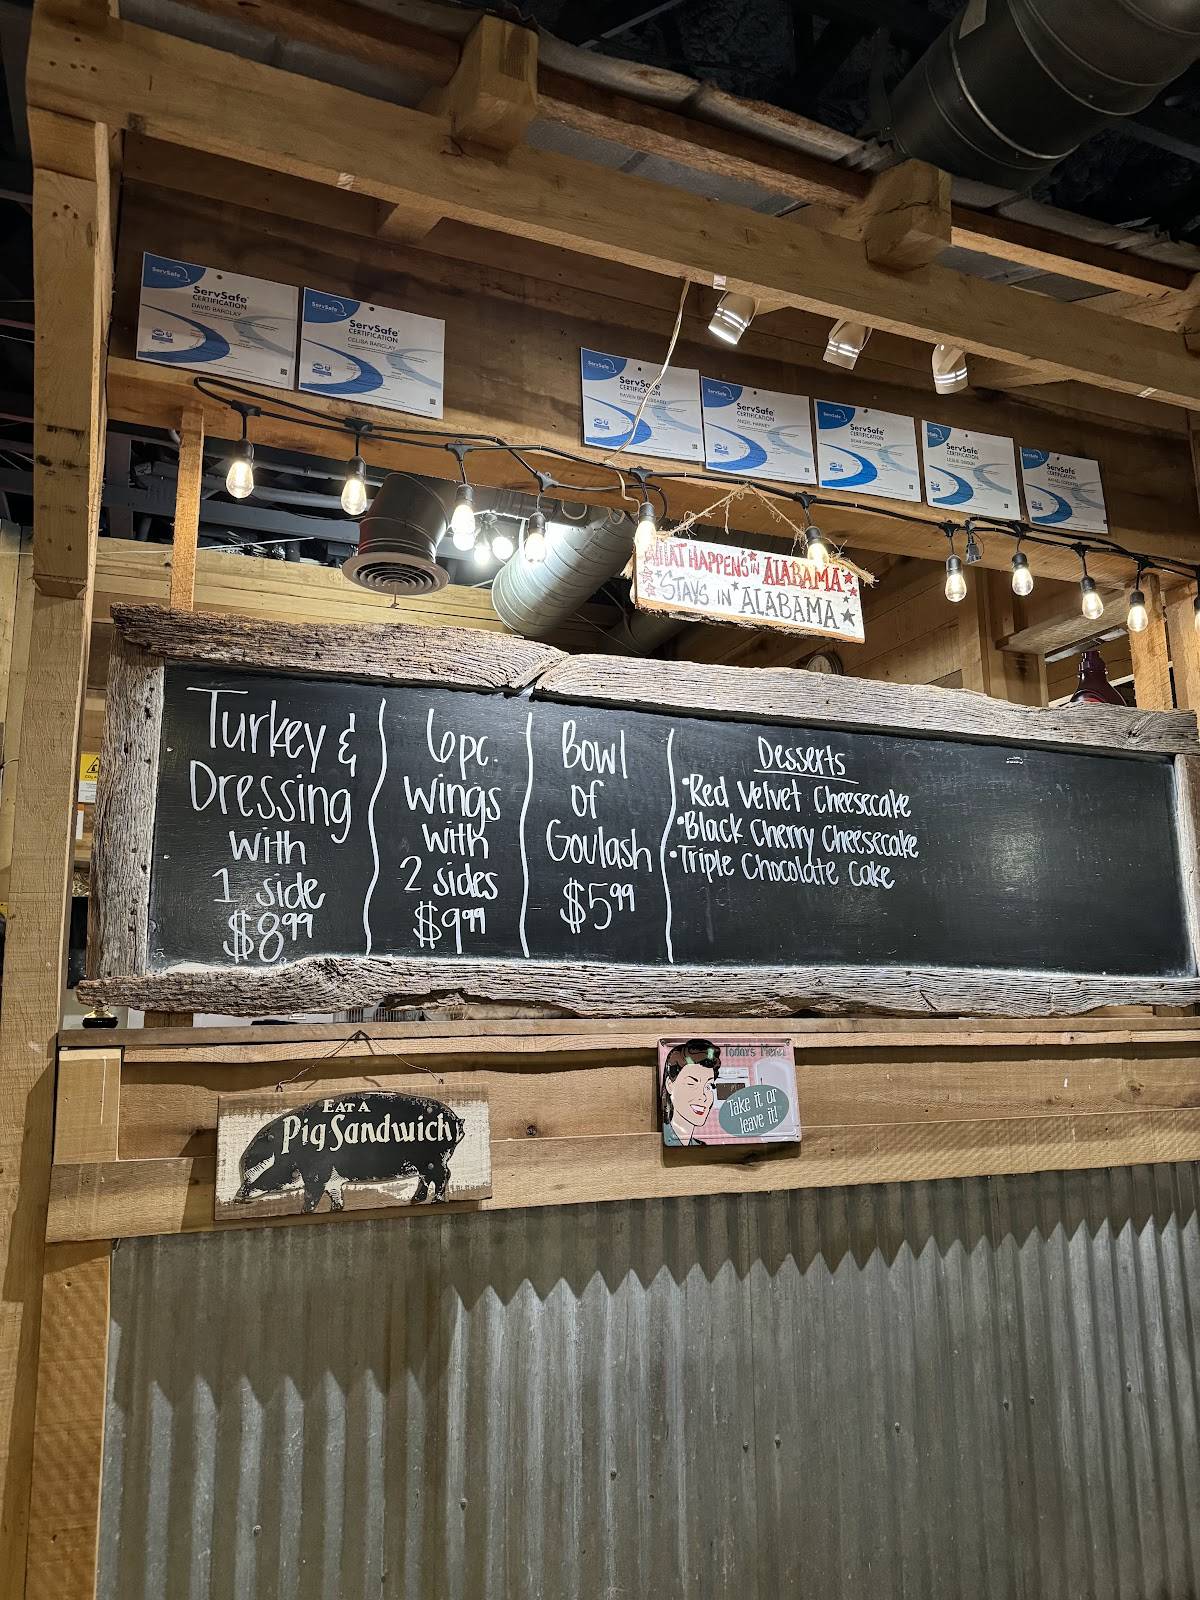 ServSafe
ServSafe®
CERTIFICATION
DAVID BARCLAY
ServSafe
ServSafe®
CERTIFICATION
CELISA BARCLAY
ServSafe®
CERTIFICATION
ServSafe®
CERTIFICATION
ANGEL HARVEY
ServSafe®
CERTIFICATION
ServSafe®
CERTIFICATION
ServSafe®
CERTIFICATION
WHAT HAPPENS IN ALABAMA
STAYS IN ALABAMA
Turkey &
Dressing
with
1 side
$8.99
6pc.
Wings
with
2 sides
$9.99
Bowl
of
Goulash
$5.99
Desserts
•Red Velvet Cheesecake
•Black Cherry Cheesecake
•Triple Chocolate Cake
EAT A
Pig Sandwich
Today's Menu
Take it or
leave it!